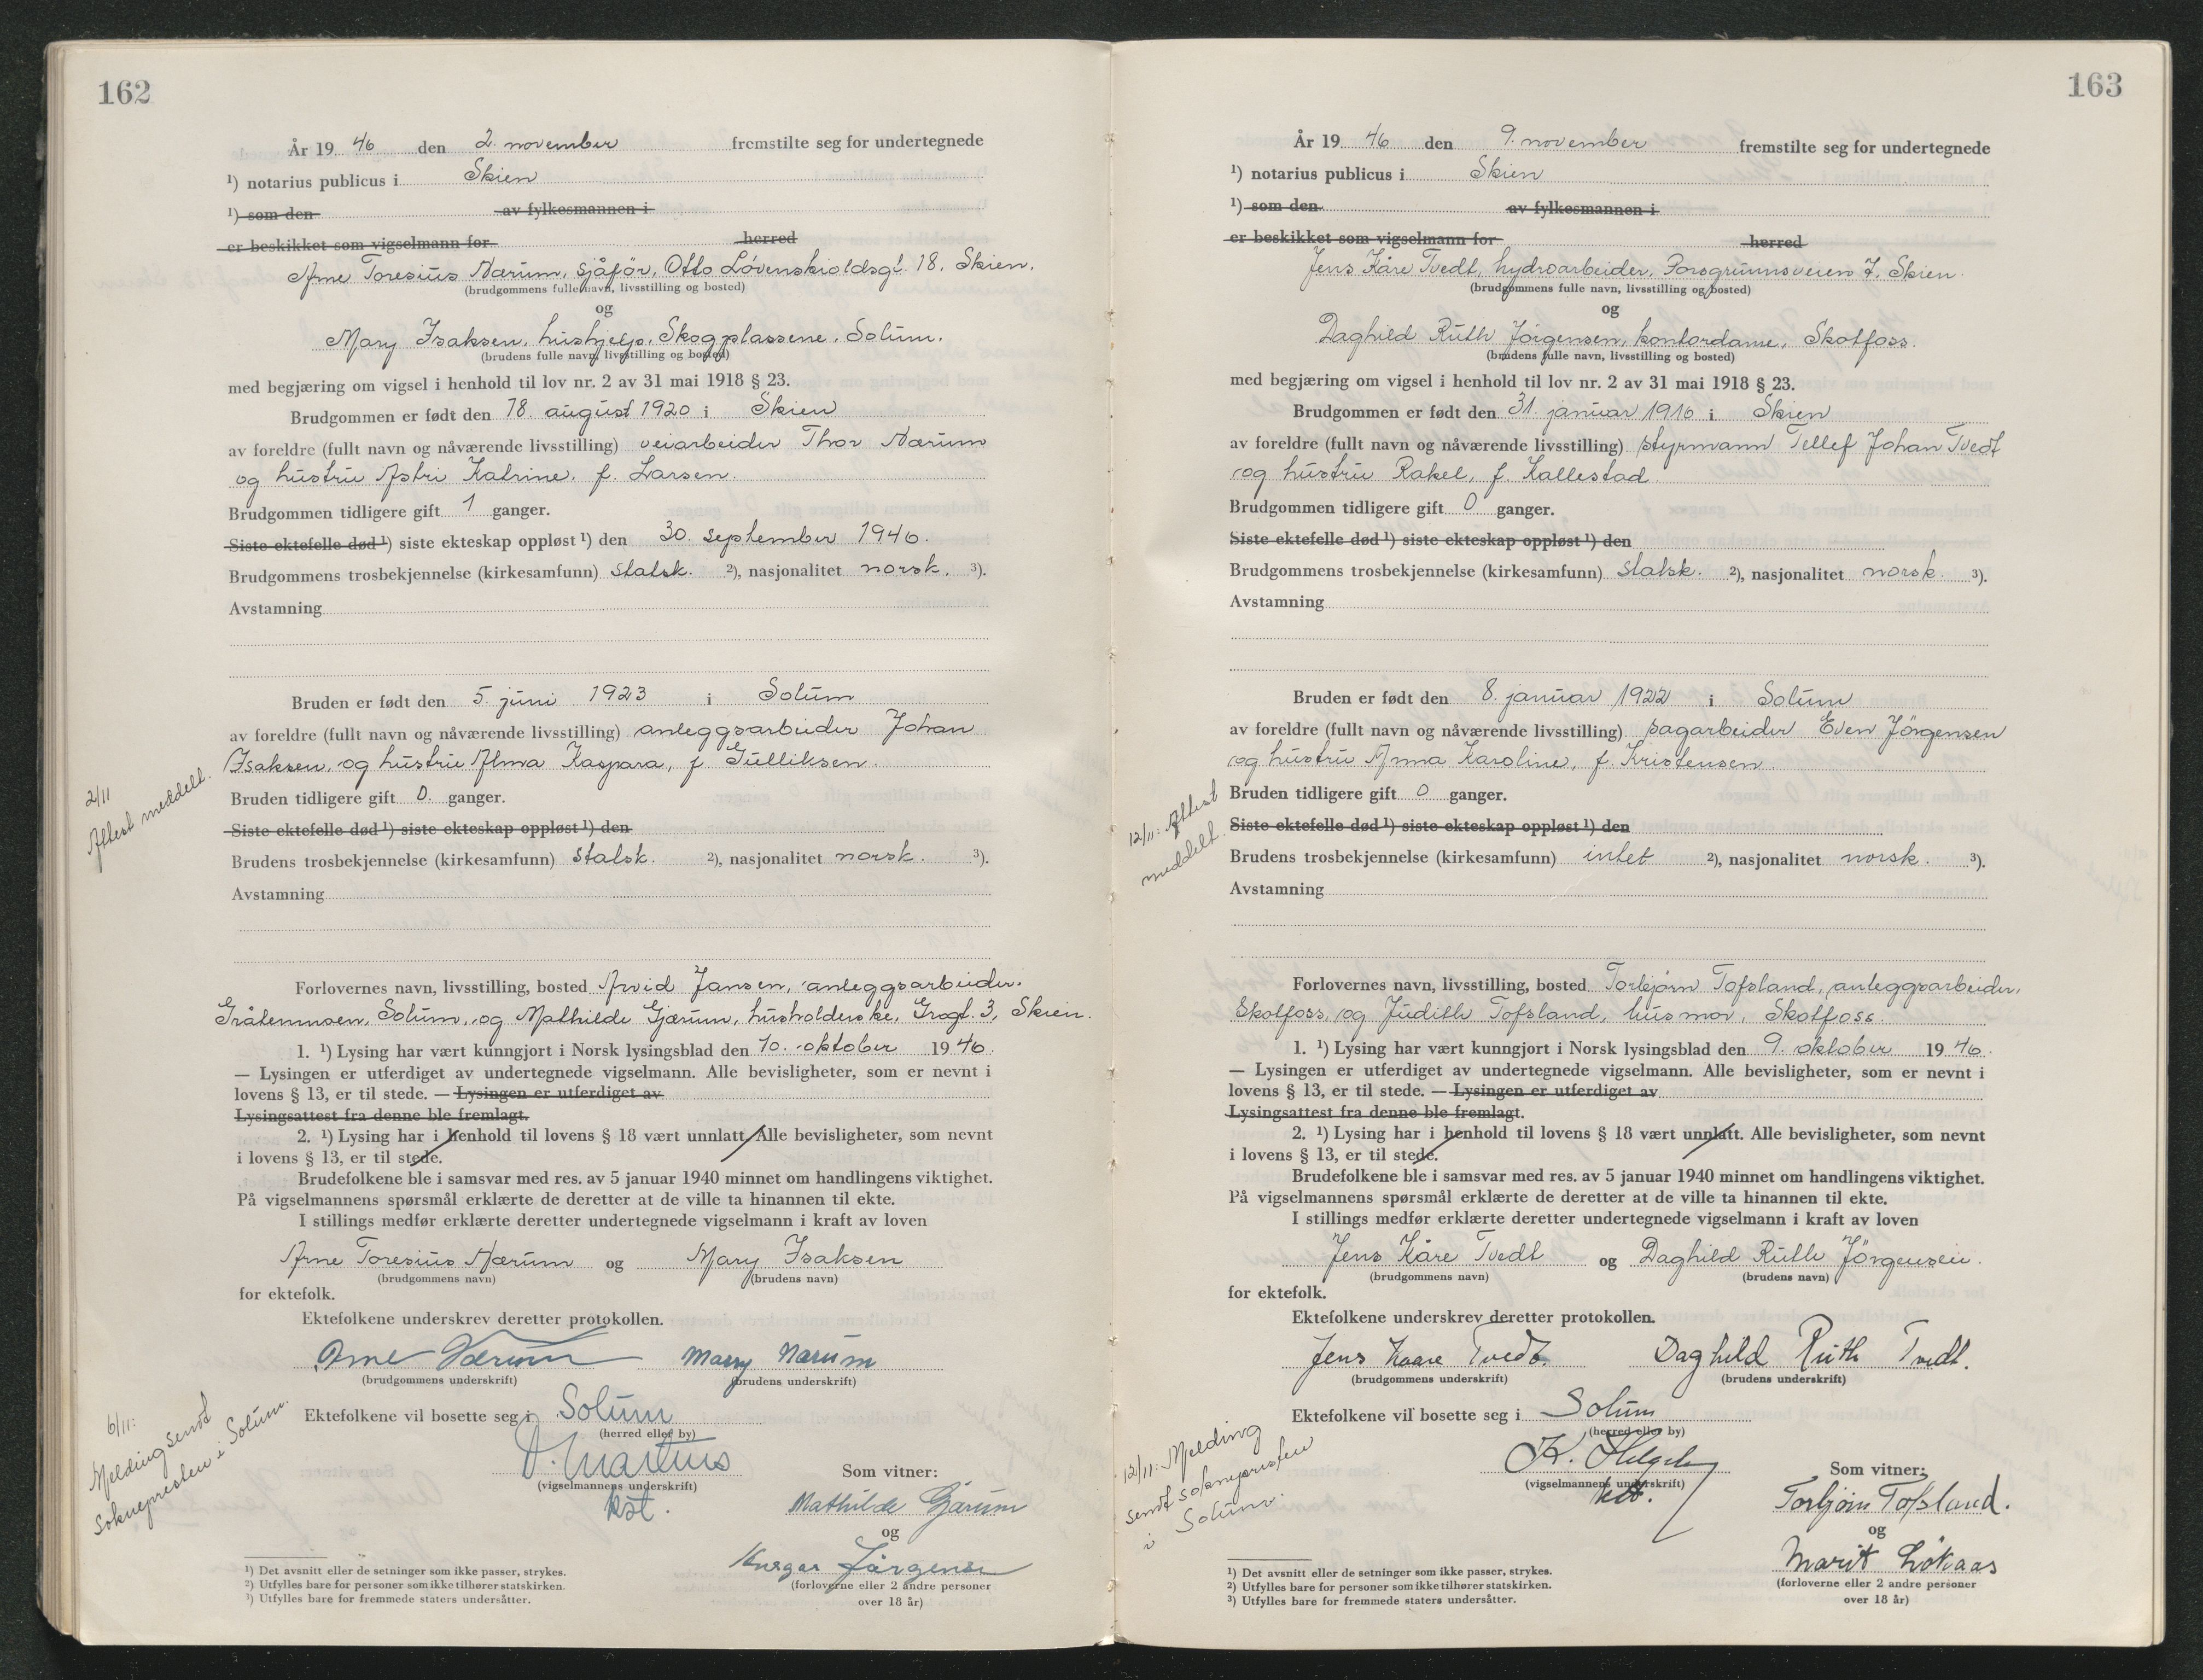 162
År 19 46 den 2. november fremstilte seg for undertegnede
¹) notarius publicus i Skien
¹) som den av fylkesmannen i
er beskikket som vigselmann for herred
Arne Toresius Nærum, sjåför, Otto Lövenskioldsgt. 18, Skien.
(brudgommens fulle navn, livsstilling og bosted)
og
Mary Isaksen, hushjelp, Skogplassene, Solum.
(brudens fulle navn, livsstilling og bosted)
med begjæring om vigsel i henhold til lov nr. 2 av 31 mai 1918 § 23.
Brudgommen er født den 18. august 1920 i Skien
av foreldre (fullt navn og nåværende livsstilling) veiarbeider Thor Nærum
og hustru Astri Katrine, f. Larsen.
Brudgommen tidligere gift 1 ganger.
Siste ektefelle død ¹) siste ekteskap oppløst ¹) den 30. september 1946.
Brudgommens trosbekjennelse (kirkesamfunn) statsk. ²), nasjonalitet norsk. ³).
Avstamning
Bruden er født den 5. juni 1923 i Solum
av foreldre (fullt navn og nåværende livsstilling) anleggsarbeider Johan
Isaksen, og hustru Alma Kaspara, f. Gulliksen.
2/11
Attest meddelt.
Bruden tidligere gift 0. ganger.
Siste ektefelle død ¹) siste ekteskap oppløst ¹) den
Brudens trosbekjennelse (kirkesamfunn) statsk. ²), nasjonalitet norsk. ³).
Avstamning
Forlovernes navn, livsstilling, bosted Arvid Jansen, anleggsarbeider.
Gråtenmoen, Solum, og Mathilde Gjærum, husholderske, Grogt. 3, Skien.
1. ¹) Lysing har vært kunngjort i Norsk lysingsblad den 10. oktober 19 46.
— Lysingen er utferdiget av undertegnede vigselmann. Alle bevisligheter, som er nevnt i
lovens § 13, er til stede. — Lysingen er utferdiget av
Lysingsattest fra denne ble fremlagt.
2. ¹) Lysing har i henhold til lovens § 18 vært unnlatt. Alle bevisligheter, som nevnt
i lovens § 13, er til stede.
Brudefolkene ble i samsvar med res. av 5 januar 1940 minnet om handlingens viktighet.
På vigselmannens spørsmål erklærte de deretter at de ville ta hinannen til ekte.
I stillings medfør erklærte deretter undertegnede vigselmann i kraft av loven
Arne Toresius Nærum og Mary Isaksen
(brudgommens navn) (brudens navn)
for ektefolk.
Ektefolkene underskrev deretter protokollen.
Arne Nærum Mary Nærum
(brudgommens underskrift) (brudens underskrift)
6/11:
Melding sendt
soknepresten i Solum.
Ektefolkene vil bosette seg i Solum
(herred eller by)
Martius
(vigselmannens underskrift)
kst.
Som vitner:
Mathilde Gjærum
og
Jörgensen
(forloverne eller 2 andre personer
over 18 år)
¹) Det avsnitt eller de setninger som ikke passer, strykes.
²) Utfylles bare for personer som ikke tilhører statskirken.
³) Utfylles bare for fremmede staters undersåtter.
163
År 19 46 den 9. november fremstilte seg for undertegnede
¹) notarius publicus i Skien
¹) som den av fylkesmannen i
er beskikket som vigselmann for herred
Jens Kåre Tvedt, hydroarbeider, Porsgrunnsveien 7, Skien.
(brudgommens fulle navn, livsstilling og bosted)
og
Daghild Ruth Jörgensen, kontordame, Skotfoss.
(brudens fulle navn, livsstilling og bosted)
med begjæring om vigsel i henhold til lov nr. 2 av 31 mai 1918 § 23.
Brudgommen er født den 31. januar 1916 i Skien
av foreldre (fullt navn og nåværende livsstilling) styrmann Tellef Johan Tvedt
og hustru Rakel, f. Kallestad.
Brudgommen tidligere gift 0 ganger.
Siste ektefelle død ¹) siste ekteskap oppløst ¹) den
Brudgommens trosbekjennelse (kirkesamfunn) statsk. ²), nasjonalitet norsk. ³).
Avstamning
Bruden er født den 8. januar 1922 i Solum
av foreldre (fullt navn og nåværende livsstilling) sagarbeider Even Jörgensen
og hustru Anna Karoline, f. Kristensen.
12/11: Attest
meddelt.
Bruden tidligere gift 0 ganger.
Siste ektefelle død ¹) siste ekteskap oppløst ¹) den
Brudens trosbekjennelse (kirkesamfunn) intet ²), nasjonalitet norsk. ³).
Avstamning
Forlovernes navn, livsstilling, bosted Torbjörn Tofsland, anleggsarbeider,
Skotfoss, og Judith Tofsland, husmor, Skotfoss.
1. ¹) Lysing har vært kunngjort i Norsk lysingsblad den 9. oktober 19 46.
— Lysingen er utferdiget av undertegnede vigselmann. Alle bevisligheter, som er nevnt i
lovens § 13, er til stede. — Lysingen er utferdiget av
Lysingsattest fra denne ble fremlagt.
2. ¹) Lysing har i henhold til lovens § 18 vært unnlatt. Alle bevisligheter, som nevnt
i lovens § 13, er til stede.
Brudefolkene ble i samsvar med res. av 5 januar 1940 minnet om handlingens viktighet.
På vigselmannens spørsmål erklærte de deretter at de ville ta hinannen til ekte.
I stillings medfør erklærte deretter undertegnede vigselmann i kraft av loven
Jens Kåre Tvedt og Daghild Ruth Jörgensen.
(brudgommens navn) (brudens navn)
for ektefolk.
Ektefolkene underskrev deretter protokollen.
Jens Kaare Tvedt. Daghild Ruth Tvedt.
(brudgommens underskrift) (brudens underskrift)
12/11: Melding
sendt soknepresten
i Solum.
Ektefolkene vil bosette seg i Solum
(herred eller by)
K.
(vigselmannens underskrift)
Som vitner:
Torbjörn Tofsland.
og
Marit Lökaas
(forloverne eller 2 andre personer
over 18 år)
¹) Det avsnitt eller de setninger som ikke passer, strykes.
²) Utfylles bare for personer som ikke tilhører statskirken.
³) Utfylles bare for fremmede staters undersåtter.